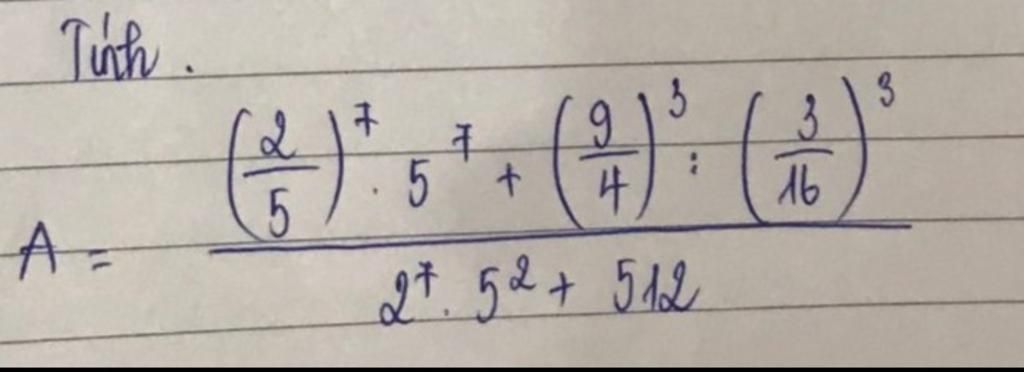 Tính.
A = \frac{\left(\frac{2}{5}\right)^7 . 5^7 + \left(\frac{9}{4}\right)^3 : \left(\frac{3}{16}\right)^3}{2^7 . 5^2 + 512}